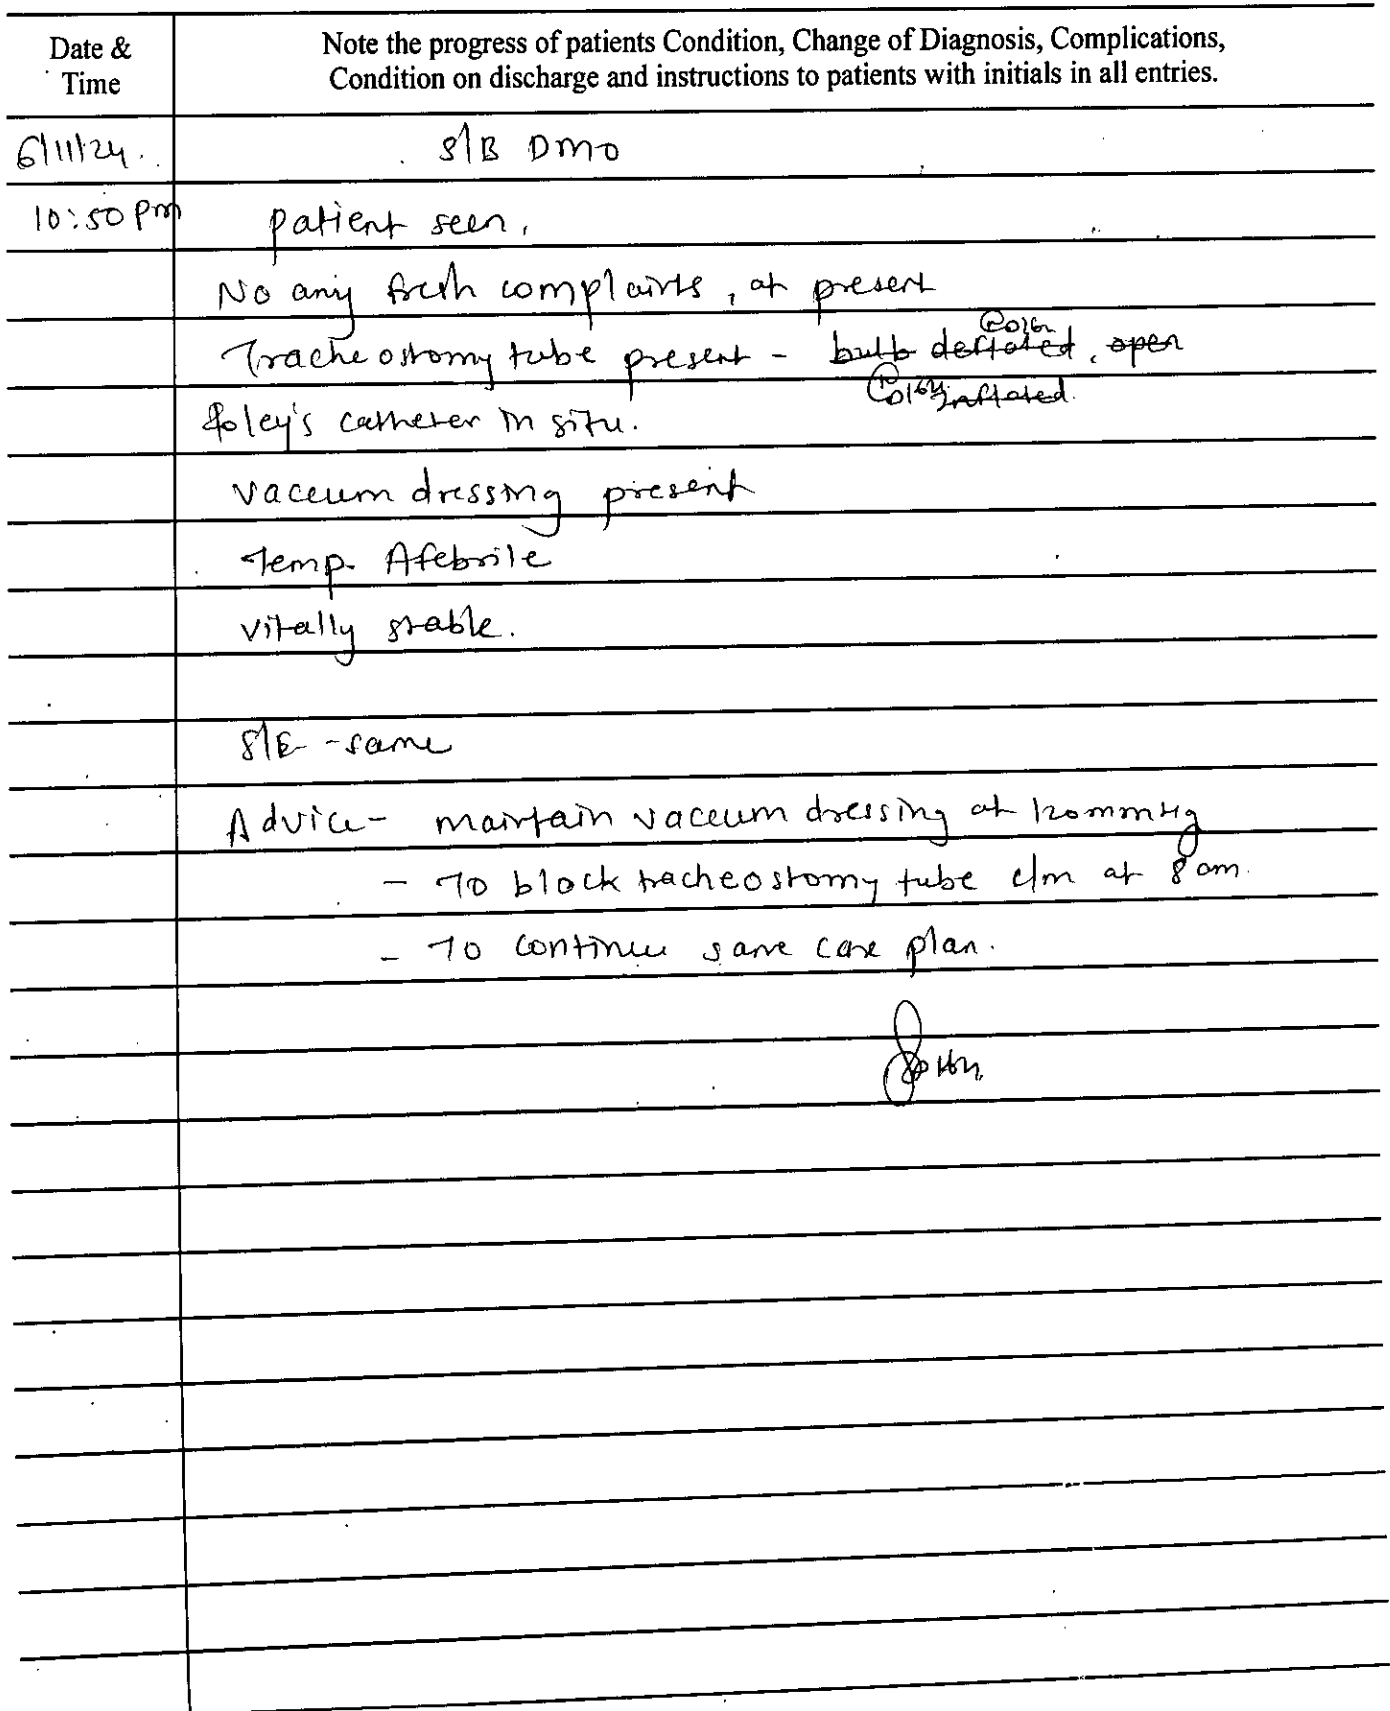 Date & Time
Note the progress of patients Condition, Change of Diagnosis, Complications,
Condition on discharge and instructions to patients with initials in all entries.
6/11/24. S/B DMO
10:50 pm patient seen,
No any fresh complaints, at present
Tracheostomy tube present - bulb deflated, open
inflated.
foley's catheter in situ.
vaceum dressing present
Temp. Afebrile
vitally stable.
S/E - same
Advice - maintain vaceum dressing at 120mmHg
- To block tracheostomy tube c/m at 8 am.
- To continue same care plan.